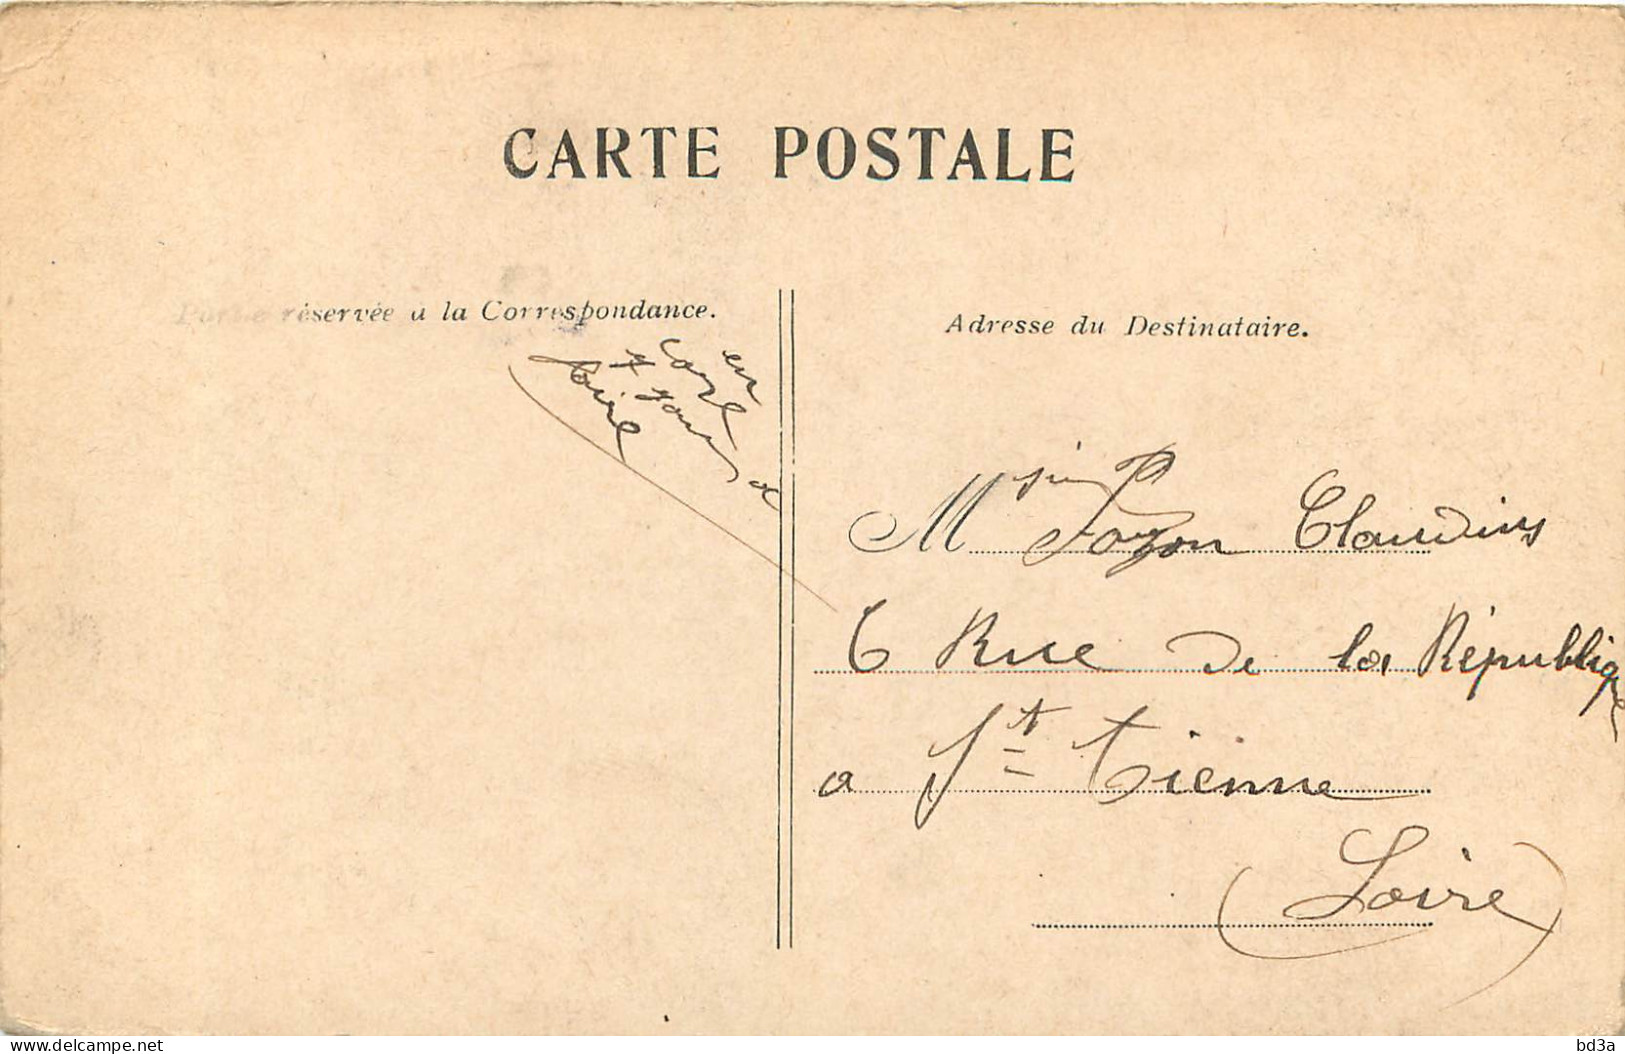 CARTE POSTALE
Partie réservée a la Correspondance.
Adresse du Destinataire.
en
encore
7 jours a
faire
M Fozon Claudius
6 Rue de la République
a St. Etienne
(Loire)
delcampe.net
bd3a